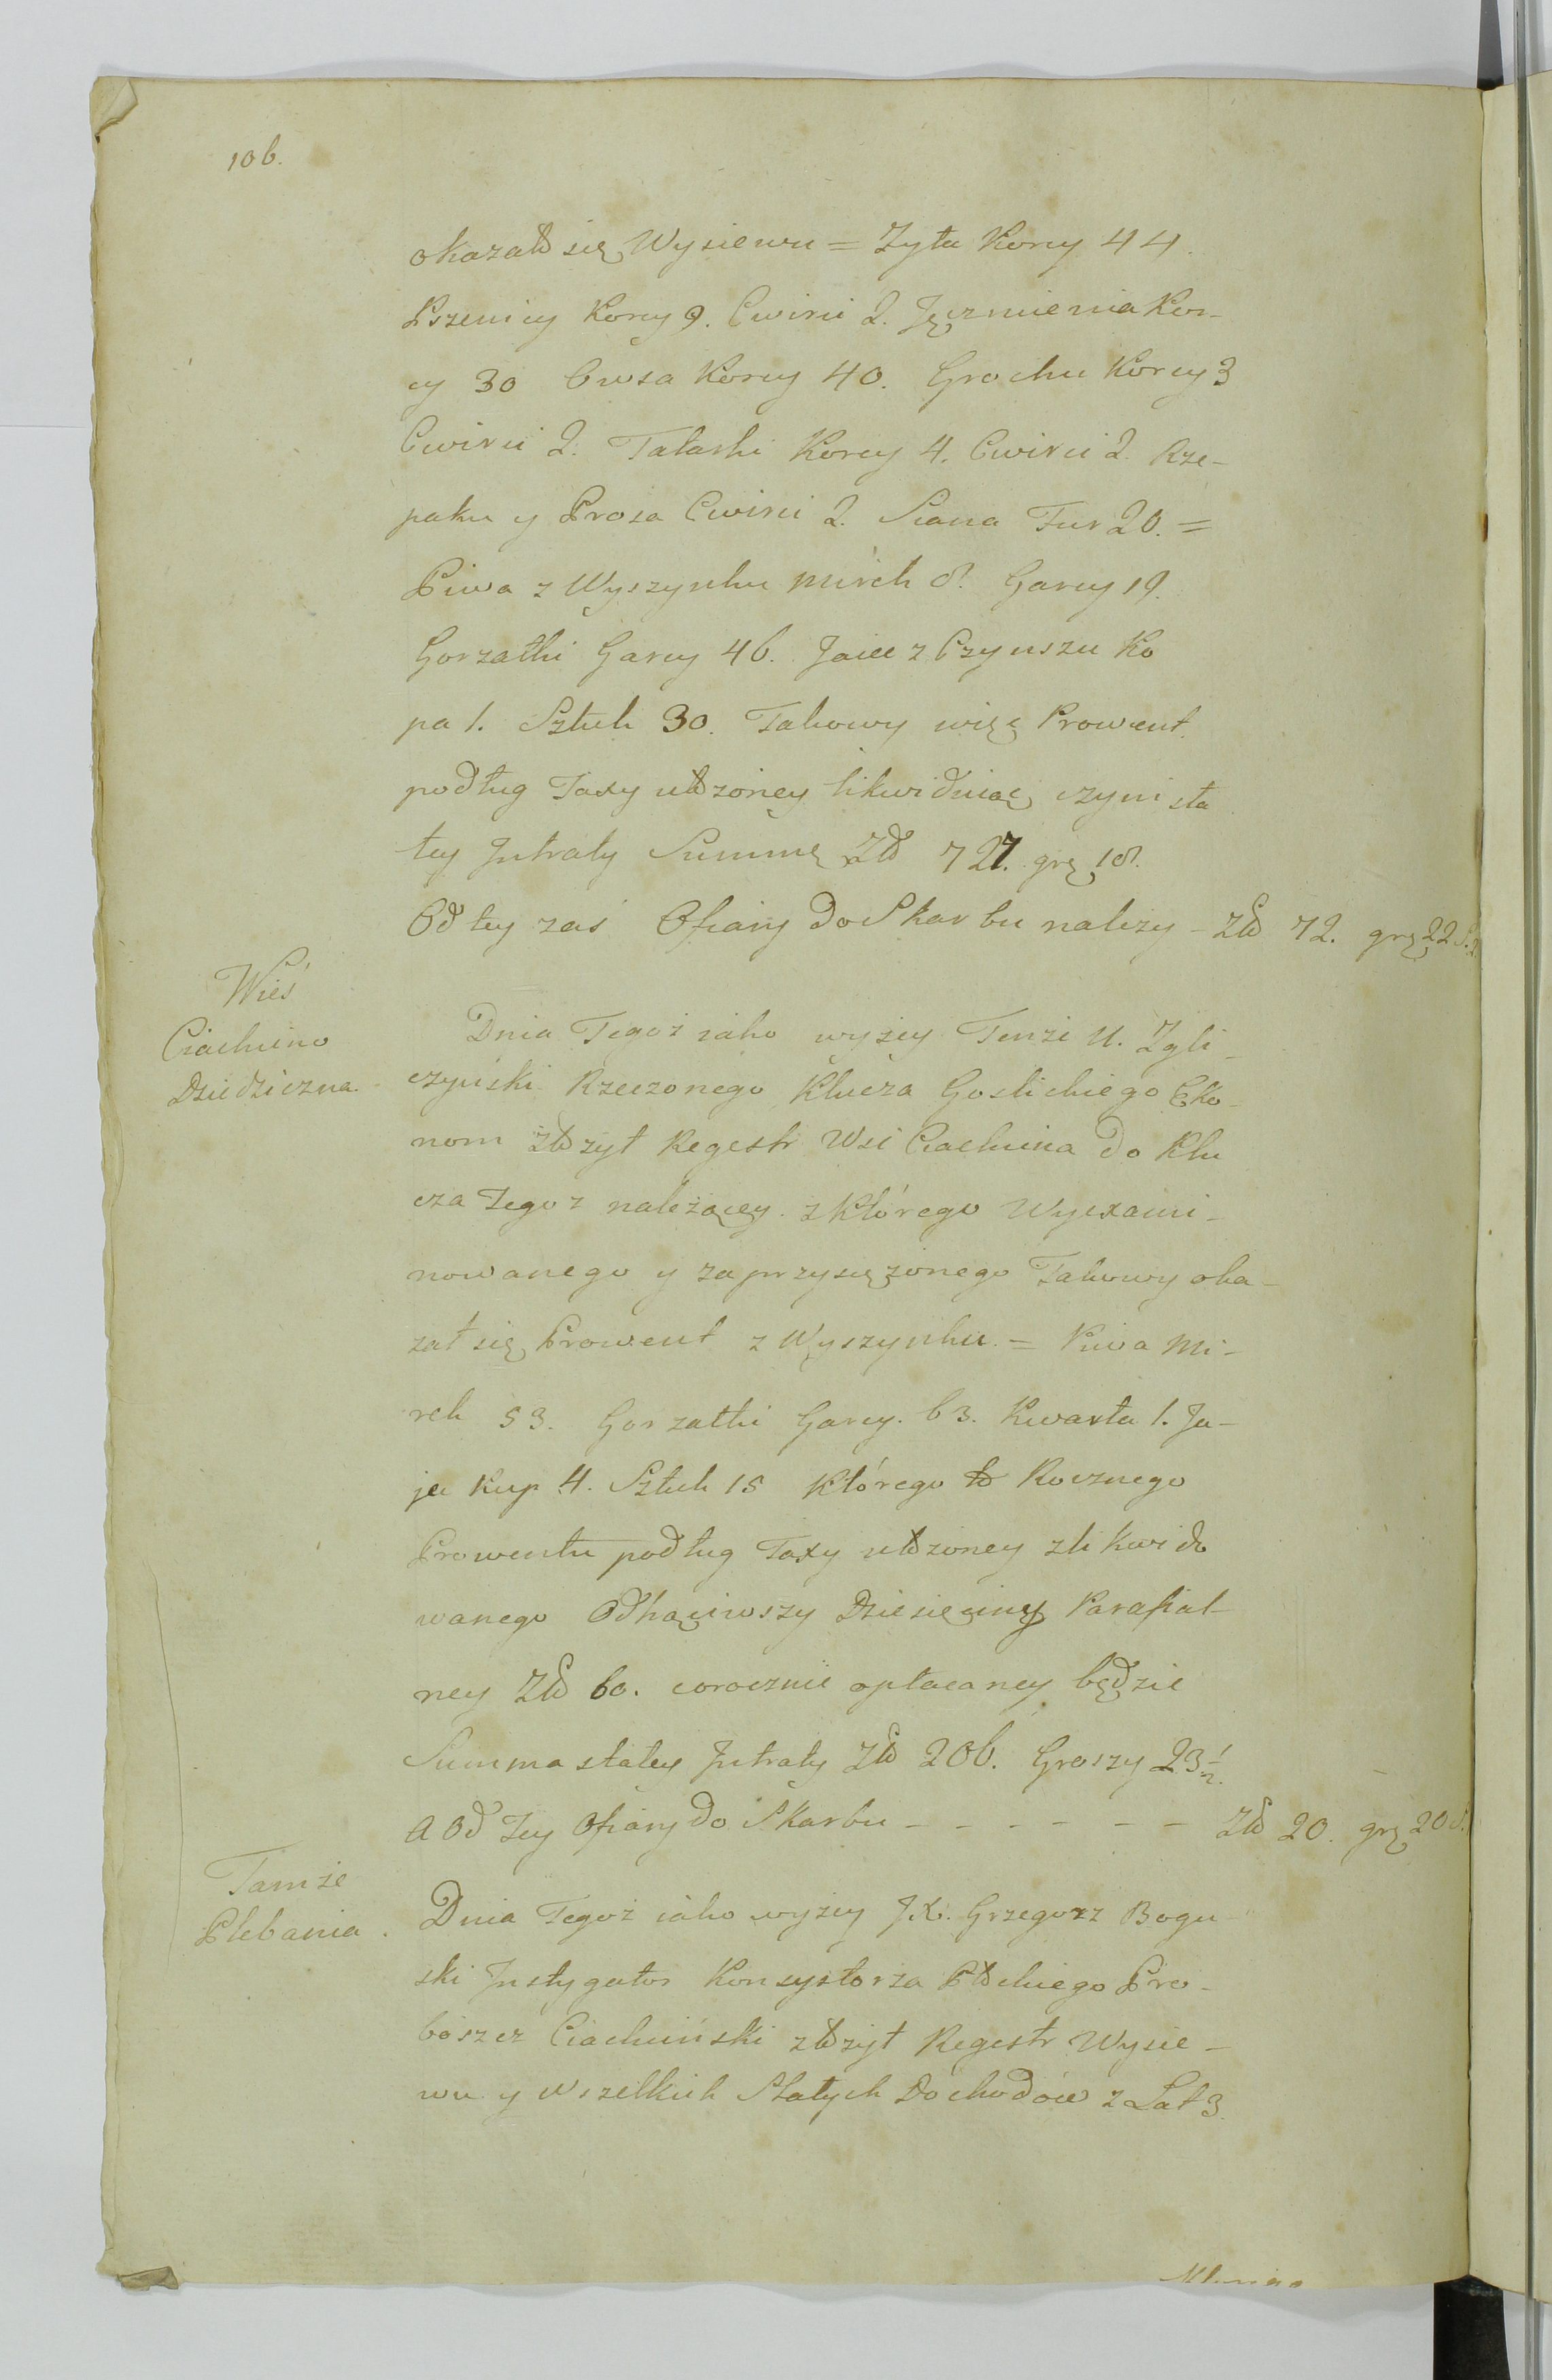 106.
okazał się Wysiewu = Zyta Korcy 44.
Pszenicy Korcy 9. Cwierci 2. Jęczmienia Kor-
cy 30 Owsa Korcy 40. Grochu Korcy 3
Cwierci 2. Tatarki Korcy 4. Cwierci 2. Rze-
paku y Prosa Cwierci 2. Siana Fur 20. =
Piwa z Wyszynku mirek 8. Garcy 19.
Gorzałki Garcy 46. Jaiec z Czynszu Ko
pa 1. Sztuk 30. Takowy więc Prowent
podług Taxy ułożoney likwiduiąc czyni sta
tey Jntraty Summę Zł 727. grę 18.
Od tey zaś Ofiary do Skarbu należy - Zł 72. grę 22 S. 2.
Wieś
Ciachcino
Dziedziczna.
Dnia Tegoż iako wyżey Tenże U. Zgli-
czyński Rzeczonego Klucza Goslickiego Eko-
nom złożył Regestr Wsi Ciachcina do Klu
cza Tegoż należącey z którego Wyexami-
nowanego y zaprzysiężonego Takowy oka-
zał się Prowent z Wyszynku = Piwa Mi-
rek 53. Gorzałki Garcy. 63. Kwarta 1. Ja-
je Kup 4. Sztuk 15 Którego to Rocznego
Prowentu podług Taxy ułożoney zlikwido
wanego Odtrąciwszy Dziesięciny Parafial-
ney Zł 60. corocznie opłacaney będzie
Summa stałey Jntraty Zł 206. Groszy 23 1/2.
A Od Tey Ofiary do Skarbu - - - - - - Zł 20. grę 20 S.
Tamże
Plebania.
Dnia Tegoż iako wyżey JX. Grzegorz Bogu-
ski Jnstygator Konsystorza Płockiego Pro-
boszcz Ciachciński złożył Regestr Wysie-
wu y Wszelkich Stałych Dochodów z Lat 3.